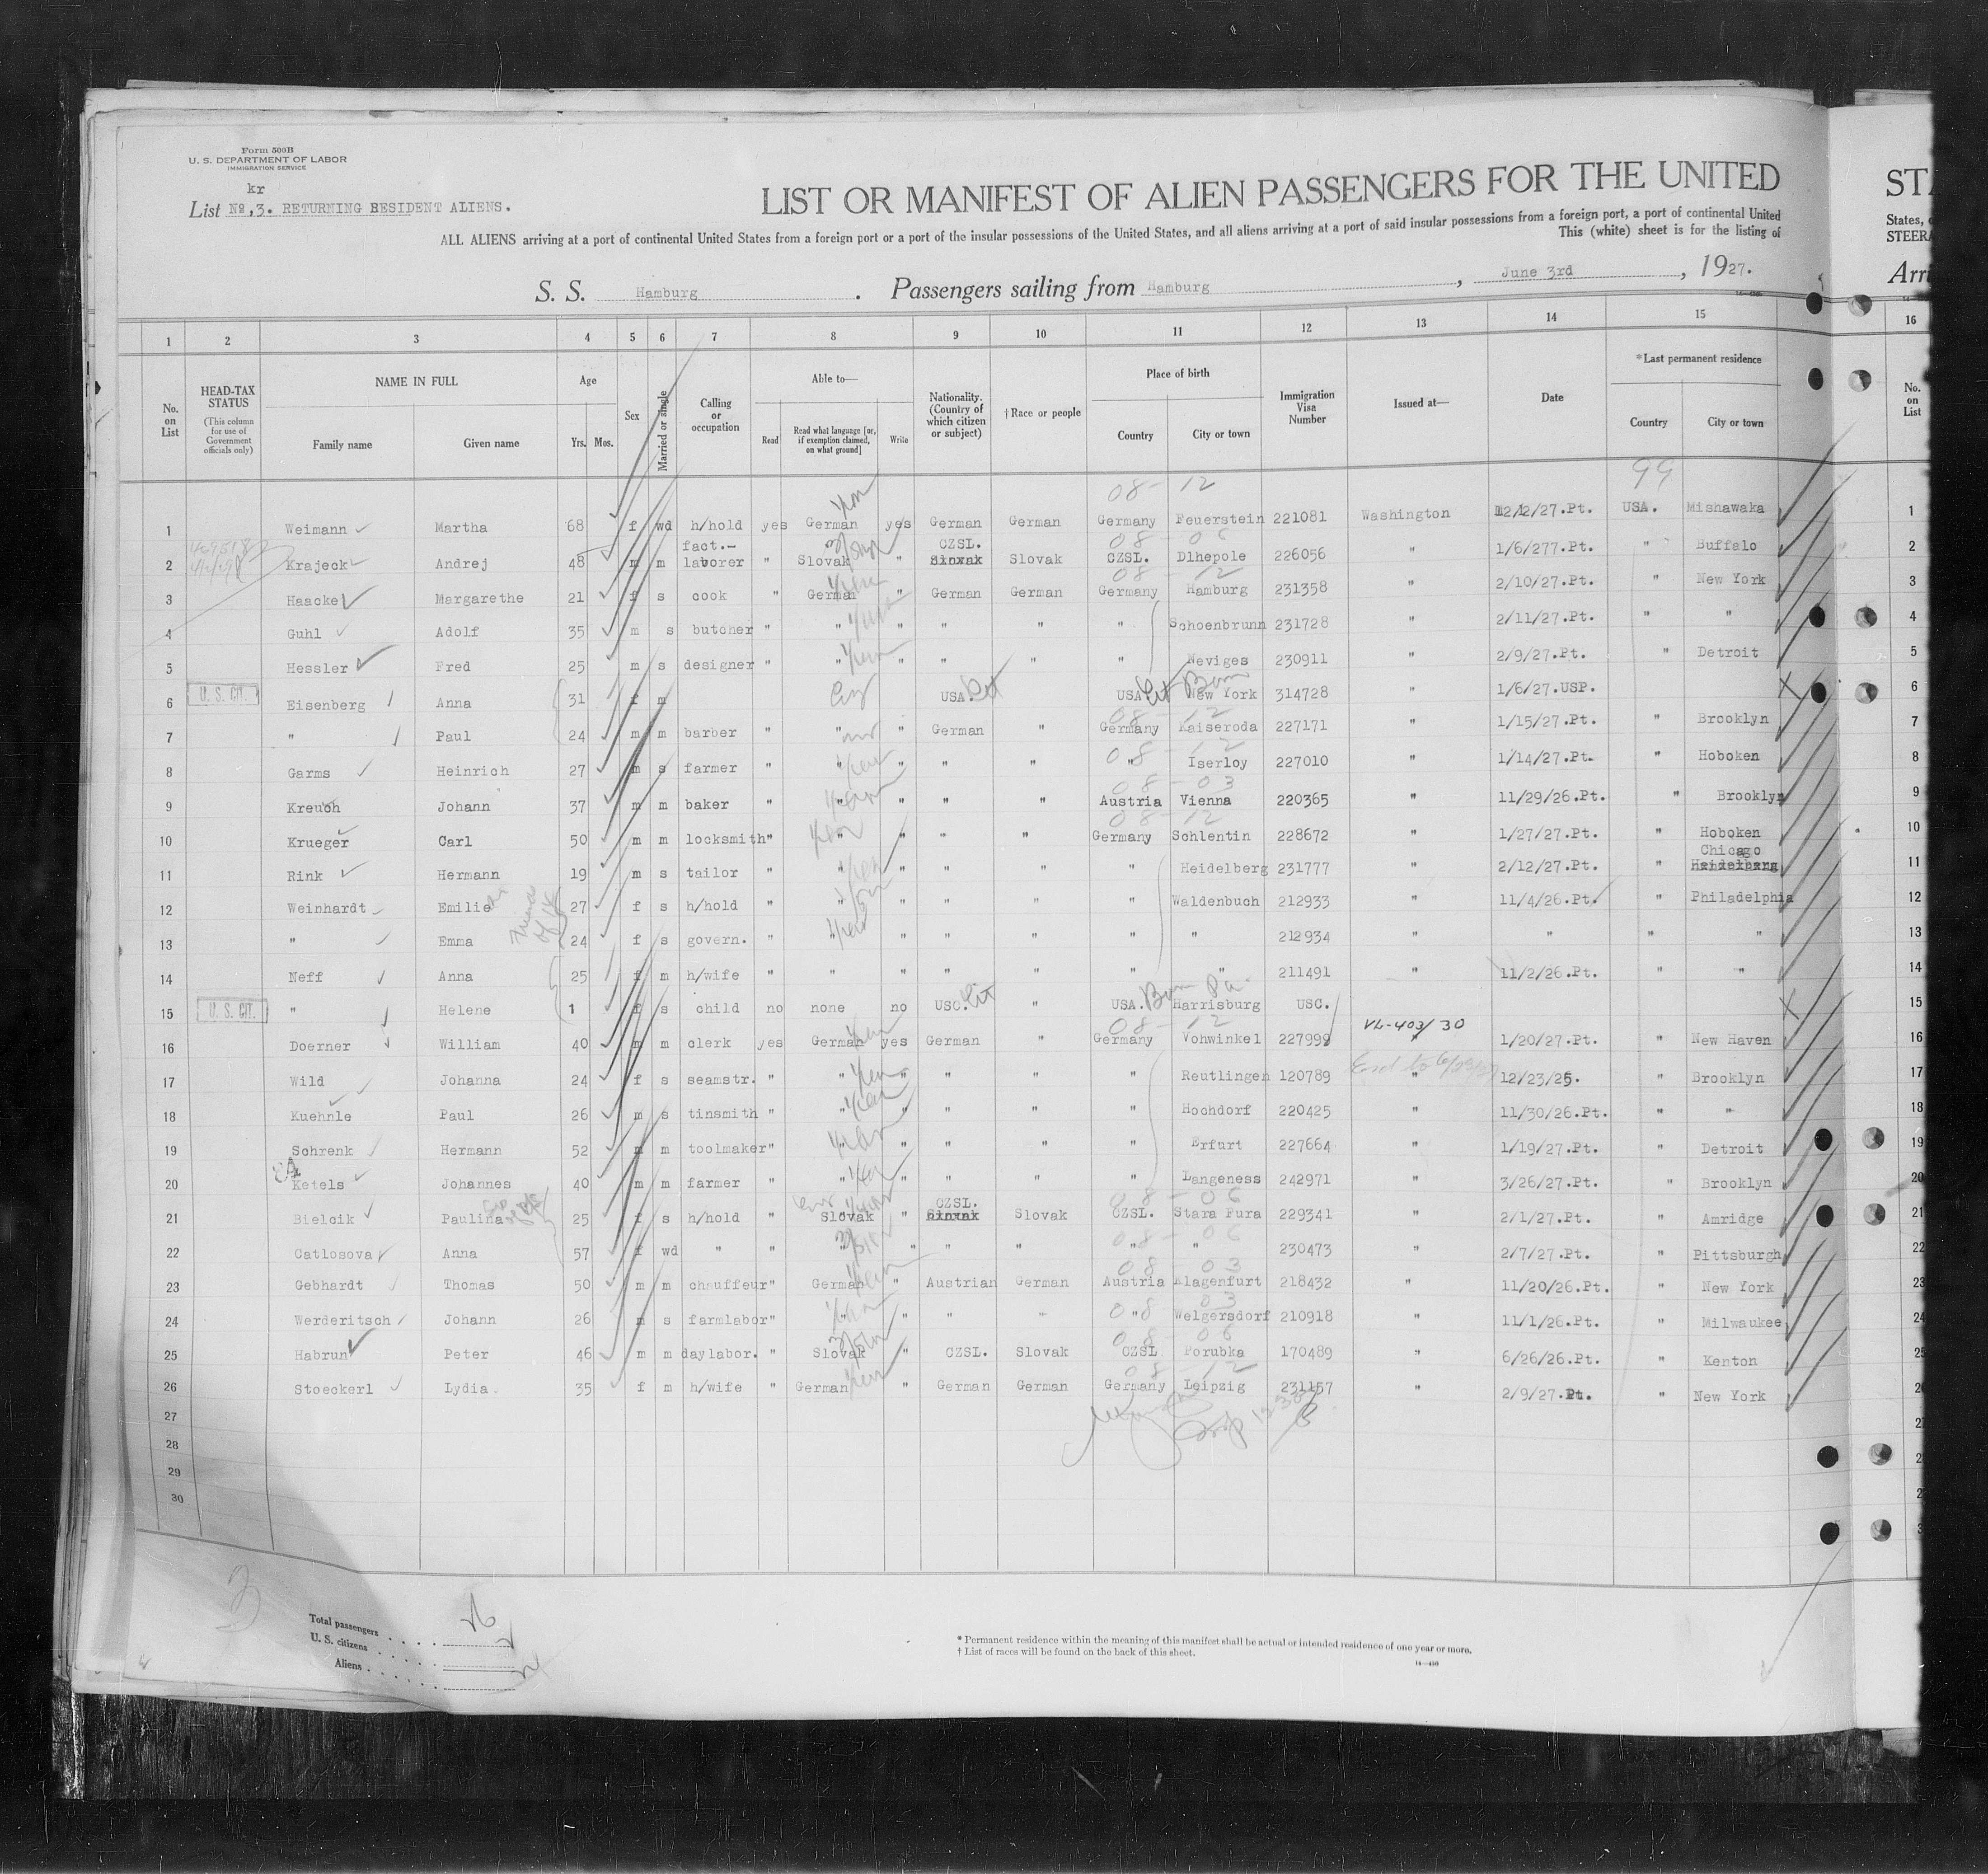 Form 500B
U. S. DEPARTMENT OF LABOR
IMMIGRATION SERVICE
kr
List No,3. RETURNING RESIDENT ALIENS.
LIST OR MANIFEST OF ALIEN PASSENGERS FOR THE UNITED
ALL ALIENS arriving at a port of continental United States from a foreign port or a port of the insular possessions of the United States, and all aliens arriving at a port of said insular possessions from a foreign port, a port of continental United
This (white) sheet is for the listing of
S. S. Hamburg . Passengers sailing from Hamburg , June 3rd , 1927.
STA
States,
STEERA
Arri
1 2 3 4 5 6 7 8 9 10 11 12 13 14 15 16
No. on List
HEAD-TAX STATUS
(This column for use of Government officials only)
NAME IN FULL
Family name Given name
Age
Yrs. Mos.
Sex
Married or single
Calling or occupation
Able to—
Read
Read what language [or, if exemption claimed, on what ground]
Write
Nationality. (Country of which citizen or subject)
† Race or people
Place of birth
Country City or town
Immigration Visa Number
Issued at—
Date
* Last permanent residence
Country City or town
No. on List
08 - 12 99
1 Weimann Martha 68 f wd h/hold yes German yes German German Germany Feuerstein 221081 Washington 12/2/27.Pt. USA. Mishawaka 1
2 Krajeck Andrej 48 m m fact.- laborer " Slovak " CZSL. Slovak Slovak CZSL. Dlhepole 226056 " 1/6/277.Pt. " Buffalo 2
3 Haacke Margarethe 21 f s cook " German " German German Germany Hamburg 231358 " 2/10/27.Pt. " New York 3
4 Guhl Adolf 35 m s butcher " " " " " " Schoenbrunn 231728 " 2/11/27.Pt. " " 4
5 Hessler Fred 25 m s designer " " " " " " Neviges 230911 " 2/9/27.Pt. " Detroit 5
6 U. S. CIT. Eisenberg Anna 31 f m USA. Cit USA. Cit Born New York 314728 " 1/6/27.USP. 6
7 " Paul 24 m m barber " " " German " Germany Kaiseroda 227171 " 1/15/27.Pt. " Brooklyn 7
8 Garms Heinrich 27 m s farmer " " " " " " Iserloy 227010 " 1/14/27.Pt. " Hoboken 8
9 Kreuch Johann 37 m m baker " " " " " Austria Vienna 220365 " 11/29/26.Pt. " Brooklyn 9
10 Krueger Carl 50 m m locksmith " " " " " Germany Schlentin 228672 " 1/27/27.Pt. " Hoboken 10
11 Rink Hermann 19 m s tailor " " " " " " Heidelberg 231777 " 2/12/27.Pt. " Chicago Heidelberg 11
12 Weinhardt Emilie 27 f s h/hold " " " " " " Waldenbuch 212933 " 11/4/26.Pt. " Philadelphia 12
13 " Emma 24 f s govern. " " " " " " " 212934 " " " " 13
14 Neff Anna 25 f m h/wife " " " " " " " 211491 " 11/2/26.Pt. " " 14
15 U. S. CIT. " Helene 1 f s child no none no USC. Cit " USA. Born Pa. Harrisburg USC. 15
16 Doerner William 40 m m clerk yes German yes German " Germany Vohwinkel 227999 VL-403/30 " 1/20/27.Pt. " New Haven 16
17 Wild Johanna 24 f s seamstr. " " " " " " Reutlingen 120789 12/23/25. " Brooklyn 17
18 Kuehnle Paul 26 m s tinsmith " " " " " " Hochdorf 220425 " 11/30/26.Pt. " " 18
19 Schrenk Hermann 52 m m toolmaker " " " " " " Erfurt 227664 " 1/19/27.Pt. " Detroit 19
20 Ketels Johannes 40 m m farmer " " " " " " Langeness 242971 " 3/26/27.Pt. " Brooklyn 20
21 Bielcik Paulina 25 f s h/hold " Slovak " CZSL. Slovak Slovak CZSL. Stara Fura 229341 " 2/1/27.Pt. " Amridge 21
22 Catlosova Anna 57 f wd " " " " " " " " 230473 " 2/7/27.Pt. " Pittsburgh 22
23 Gebhardt Thomas 50 m m chauffeur " German " Austrian German Austria Klagenfurt 218432 " 11/20/26.Pt. " New York 23
24 Werderitsch Johann 26 m s farmlabor " " " " " " Welgersdorf 210918 " 11/1/26.Pt. " Milwaukee 24
25 Habrun Peter 46 m m daylabor. " Slovak " CZSL. Slovak CZSL Porubka 170489 " 6/26/26.Pt. " Kenton 25
26 Stoeckerl Lydia 35 f m h/wife " German " German German Germany Leipzig 231157 " 2/9/27.Pt. " New York 26
27
28
29
30
3
Total passengers
U. S. citizens
Aliens
* Permanent residence within the meaning of this manifest shall be actual or intended residence of one year or more.
† List of races will be found on the back of this sheet.